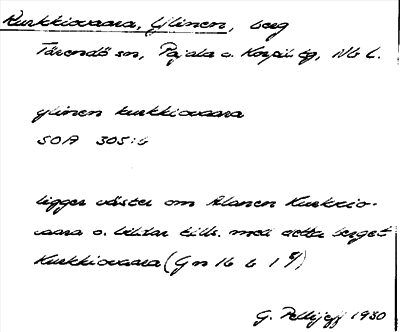 Kurkkiovaara, Ylinen, berg
Tärendö sn, Pajala o. Korpil. tg, Nb l.
ylinen kurkkiovaara
SOA 305:6
ligger väster om Alanen Kurkkio-
vaara o. bildar tills. med detta berget
Kurkkiovaara (Gn 16 b 1
G. Pellijeff 1980